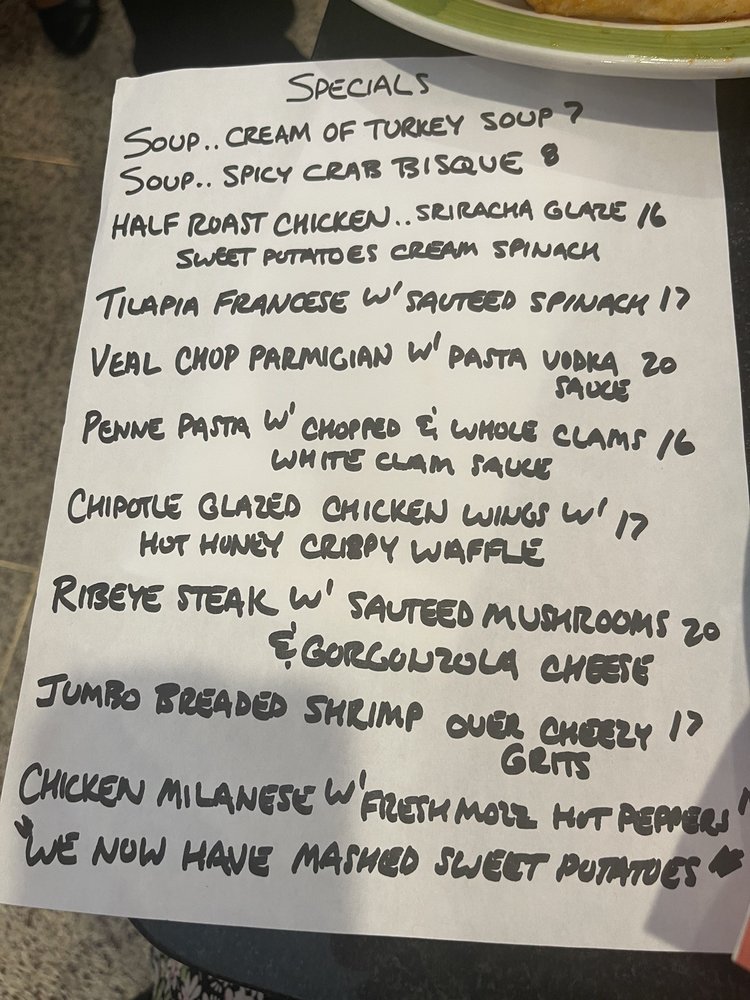 SPECIALS
SOUP.. CREAM OF TURKEY SOUP 7
SOUP.. SPICY CRAB BISQUE 8
HALF ROAST CHICKEN.. SRIRACHA GLAZE 16
SWEET POTATOES CREAM SPINACH
TILAPIA FRANCESE W' SAUTEED SPINACH 17
VEAL CHOP PARMIGIAN W' PASTA VODKA 20
SAUCE
PENNE PASTA W' CHOPPED & WHOLE CLAMS 16
WHITE CLAM SAUCE
CHIPOTLE GLAZED CHICKEN WINGS W' 17
HOT HONEY CRISPY WAFFLE
RIBEYE STEAK W' SAUTEED MUSHROOMS 20
& GORGONZOLA CHEESE
JUMBO BREADED SHRIMP OVER CHEEZY 17
GRITS
CHICKEN MILANESE W' FRESH MOZZ HOT PEPPERS
"WE NOW HAVE MASHED SWEET POTATOES"